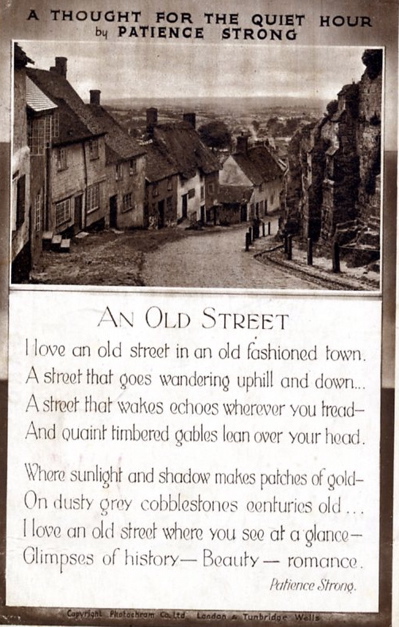 A THOUGHT FOR THE QUIET HOUR
by PATIENCE STRONG
AN OLD STREET
I love an old street in an old fashioned town.
A street that goes wandering uphill and down...
A street that wakes echoes wherever you tread—
And quaint timbered gables lean over your head.
Where sunlight and shadow makes patches of gold—
On dusty grey cobblestones centuries old ...
I love an old street where you see at a glance—
Glimpses of history — Beauty — romance.
Patience Strong.
Copyright Photochrom Co. Ltd. London & Tunbridge Wells